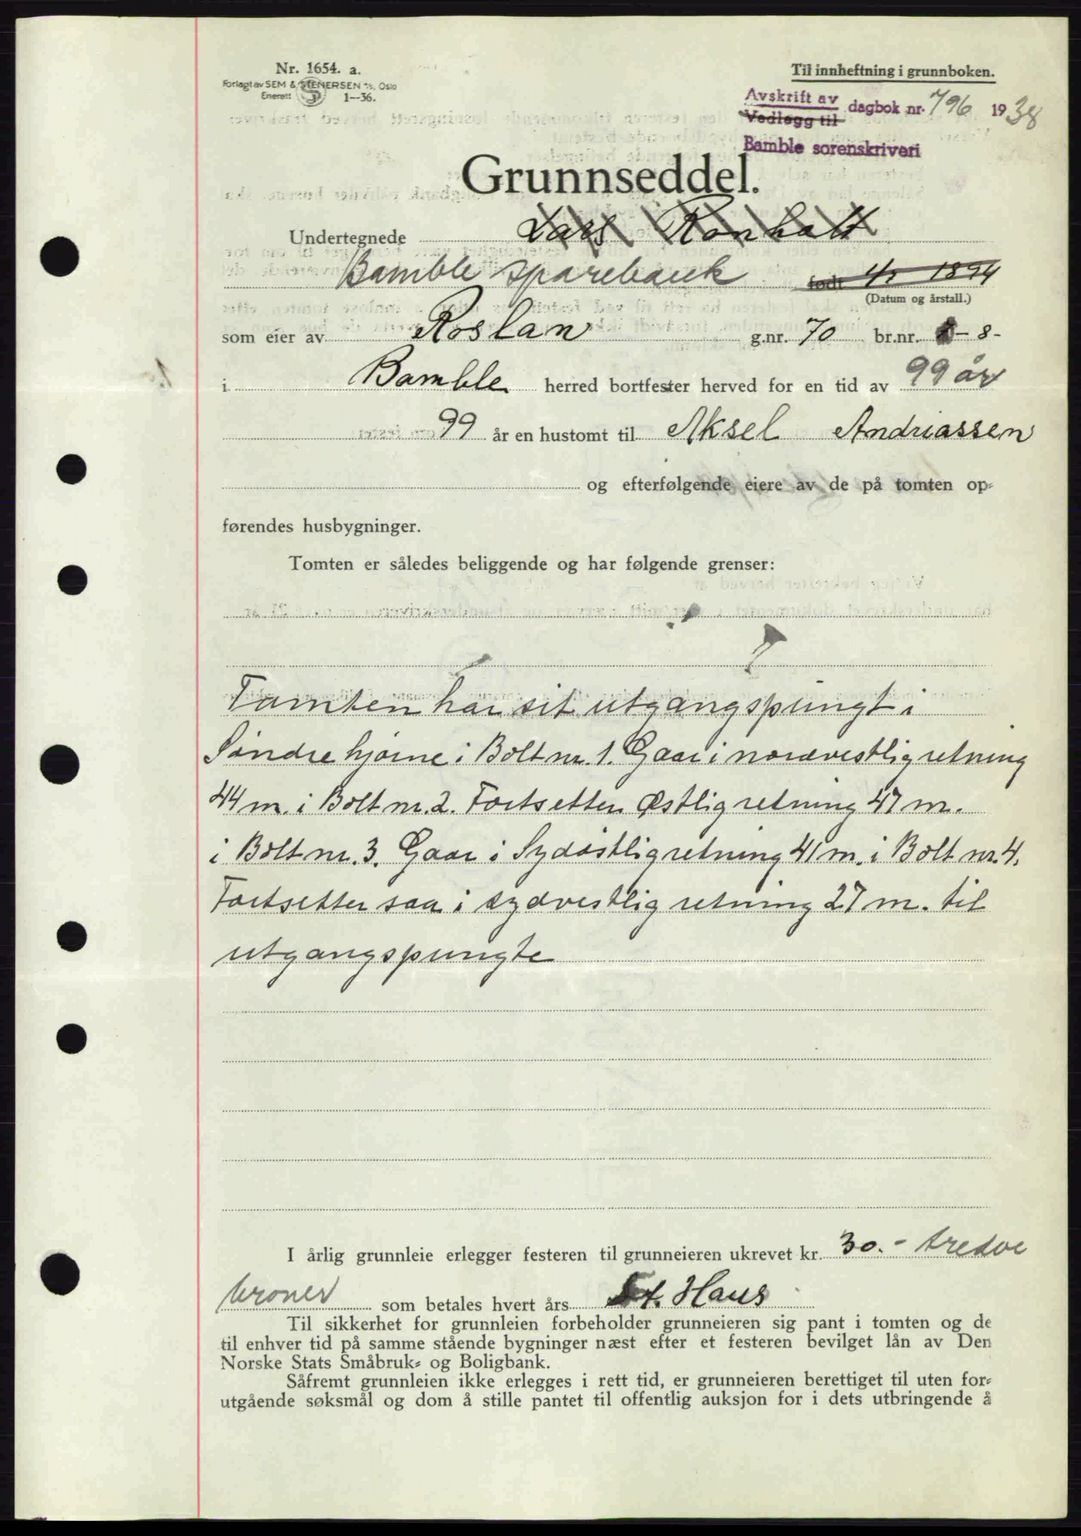 Nr. 1654. a.
Forlagt av SEM & STENERSEN A/S, Oslo
Enerett 1—36.
Til innheftning i grunnboken.
Avskrift av
Vedlegg til dagbok nr. 796 1938
Bamble sorenskriveri
Grunnseddel.
Undertegnede Lars Ronholt
Bamble sparebank født 4/5 1894
(Datum og årstall.)
som eier av Roslan g.nr. 70 br.nr. 8-
i Bamble herred bortfester herved for en tid av 99 år
99 år en hustomt til Aksel Andriassen
og efterfølgende eiere av de på tomten op-
førendes husbygninger.
Tomten er således beliggende og har følgende grenser:
Tomten har sit utgangspungt i
Søndre hjørne i Bolt nr. 1. Gaar i nordvestlig retning
44 m. i Bolt nr. 2. Fortsetter Østlig retning 47 m.
i Bolt nr. 3. Gaar i Sydøstlig retning 41 m. i Bolt nr. 4.
Fortsetter saa i sydvestlig retning 27 m. til
utgangspungte
I årlig grunnleie erlegger festeren til grunneieren ukrevet kr. 30.- tredve
kroner som betales hvert års St. Hans
Til sikkerhet for grunnleien forbeholder grunneieren sig pant i tomten og de
til enhver tid på samme stående bygninger næst efter et festeren bevilget lån av Den
Norske Stats Småbruk- og Boligbank.
Såfremt grunnleien ikke erlegges i rett tid, er grunneieren berettiget til uten for-
utgående søksmål og dom å stille pantet til offentlig auksjon for i dets utbringende å